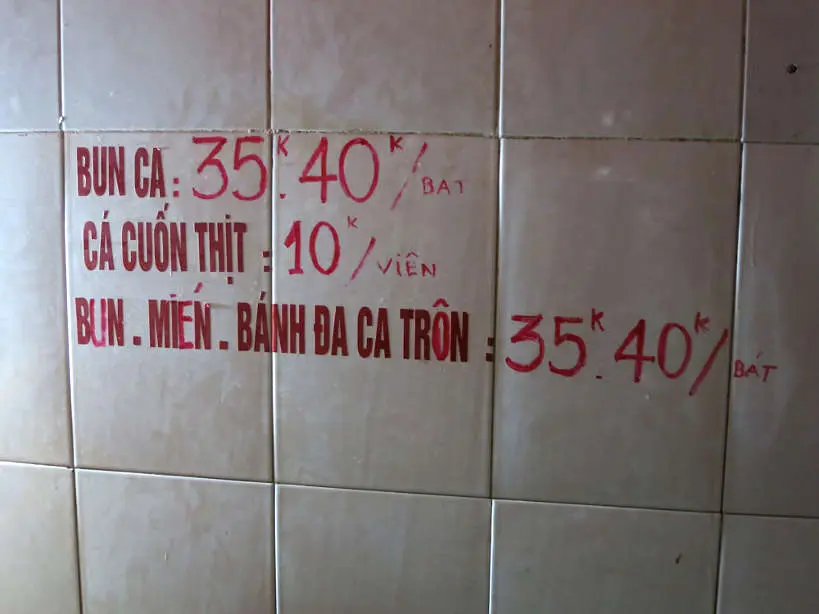 BUN CA : 35K. 40K/BAT
CÁ CUỐN THỊT : 10K/VIÊN
BUN . MIẾN . BÁNH ĐA CA TRÔN : 35K. 40K/BÁT